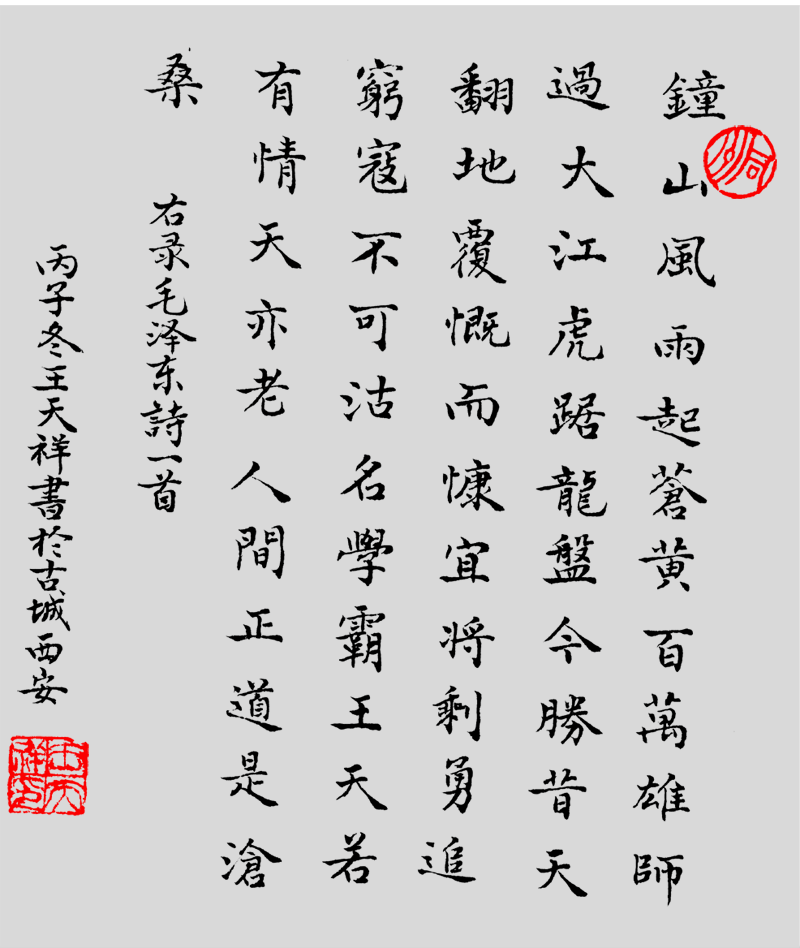 鐘山風雨起蒼黄百萬雄師
過大江虎踞龍盤今勝昔天
翻地覆慨而慷宜将剩勇追
窮寇不可沽名學霸王天若
有情天亦老人間正道是滄
桑
右录毛泽东詩一首
丙子冬王天祥書於古城西安